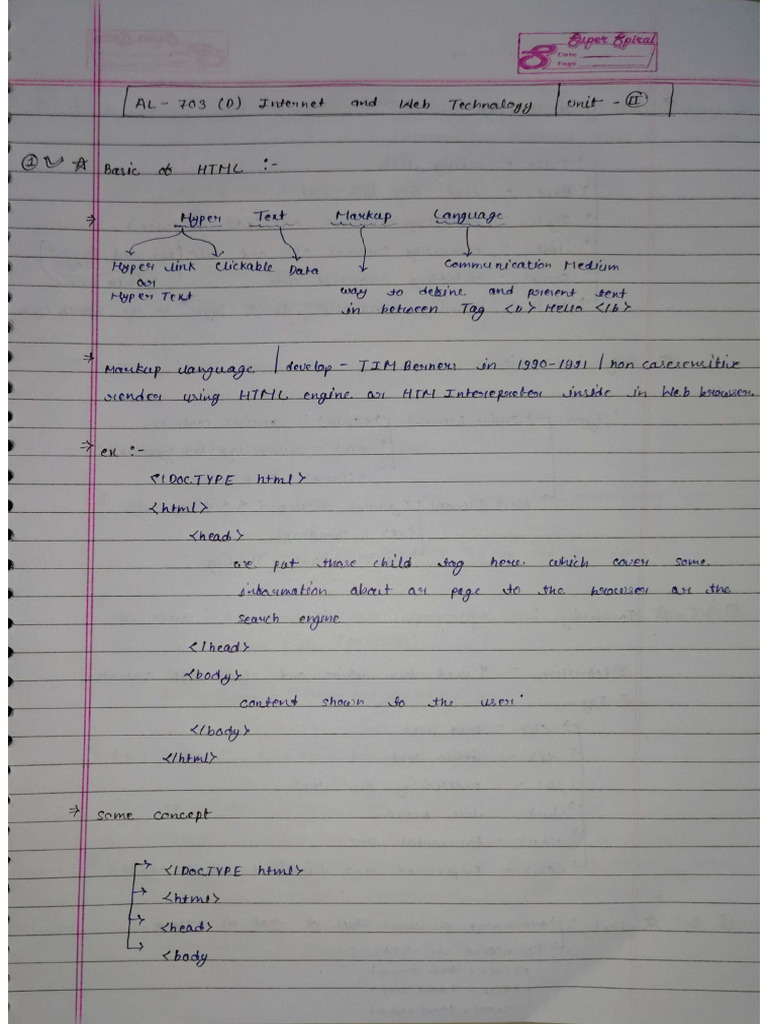 Super Spiral
Date
Page
AL - 703 (D) Internet and Web Technology | Unit - II
① ☆ Basic of HTML :-
⇒ Hyper Text Markup Language
Hyper link Clickable Data Communication Medium
or
Hyper Text way to define and present text
in between Tag <b> Hello </b>
⇒ Markup language | develop - TIM Berners in 1990-1991 | non casesensitive
render using HTML engine or HTM Interepreter inside in Web browser.
⇒ ex :-
<!DOCTYPE html>
<html>
<head>
we put those child tag here which cover some
information about ar page to the browser or the
search engine
</head>
<body>
content shown to the user.
</body>
</html>
⇒ Some concept
<!DOCTYPE html>
<html>
<head>
<body